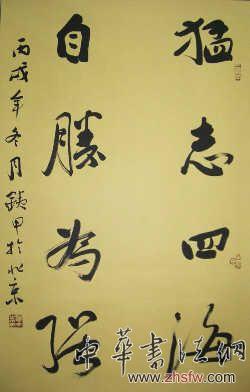 猛志四海
自勝為强
丙戌年冬月鐵甲於北京
中華書法網
www.zhsfw.com